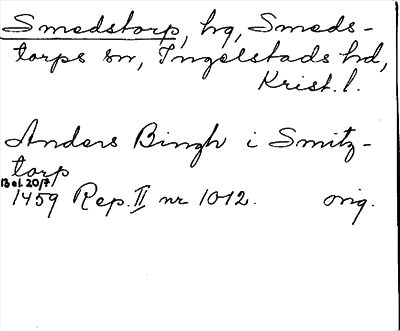 Smedstorp, hg, Smeds-
torps sn, Ingelstads hd,
Krist. l.
Anders Bingh i Smitz-
torp
13 okt. 20/7
1459 Rep. II nr 1012. orig.